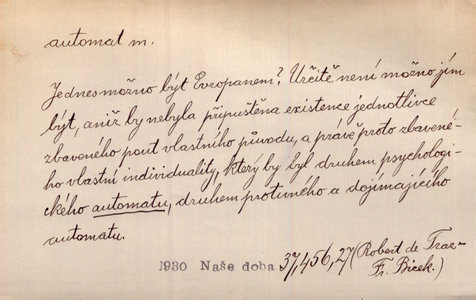 automat m.
Jednes možno být Evropanem? Určitě není možno jím
být, aniž by nebyla připuštěna existence jednotlivce
zbaveného pout vlastního původu, a právě proto zbavené-
ho vlastní individuality, který by byl druhem psychologi-
ckého automatu, druhem protivného a dojímajícího
automatu.
1930 Naše doba 37,456,27 (Robert de Traz-
Fr. Bicek.)